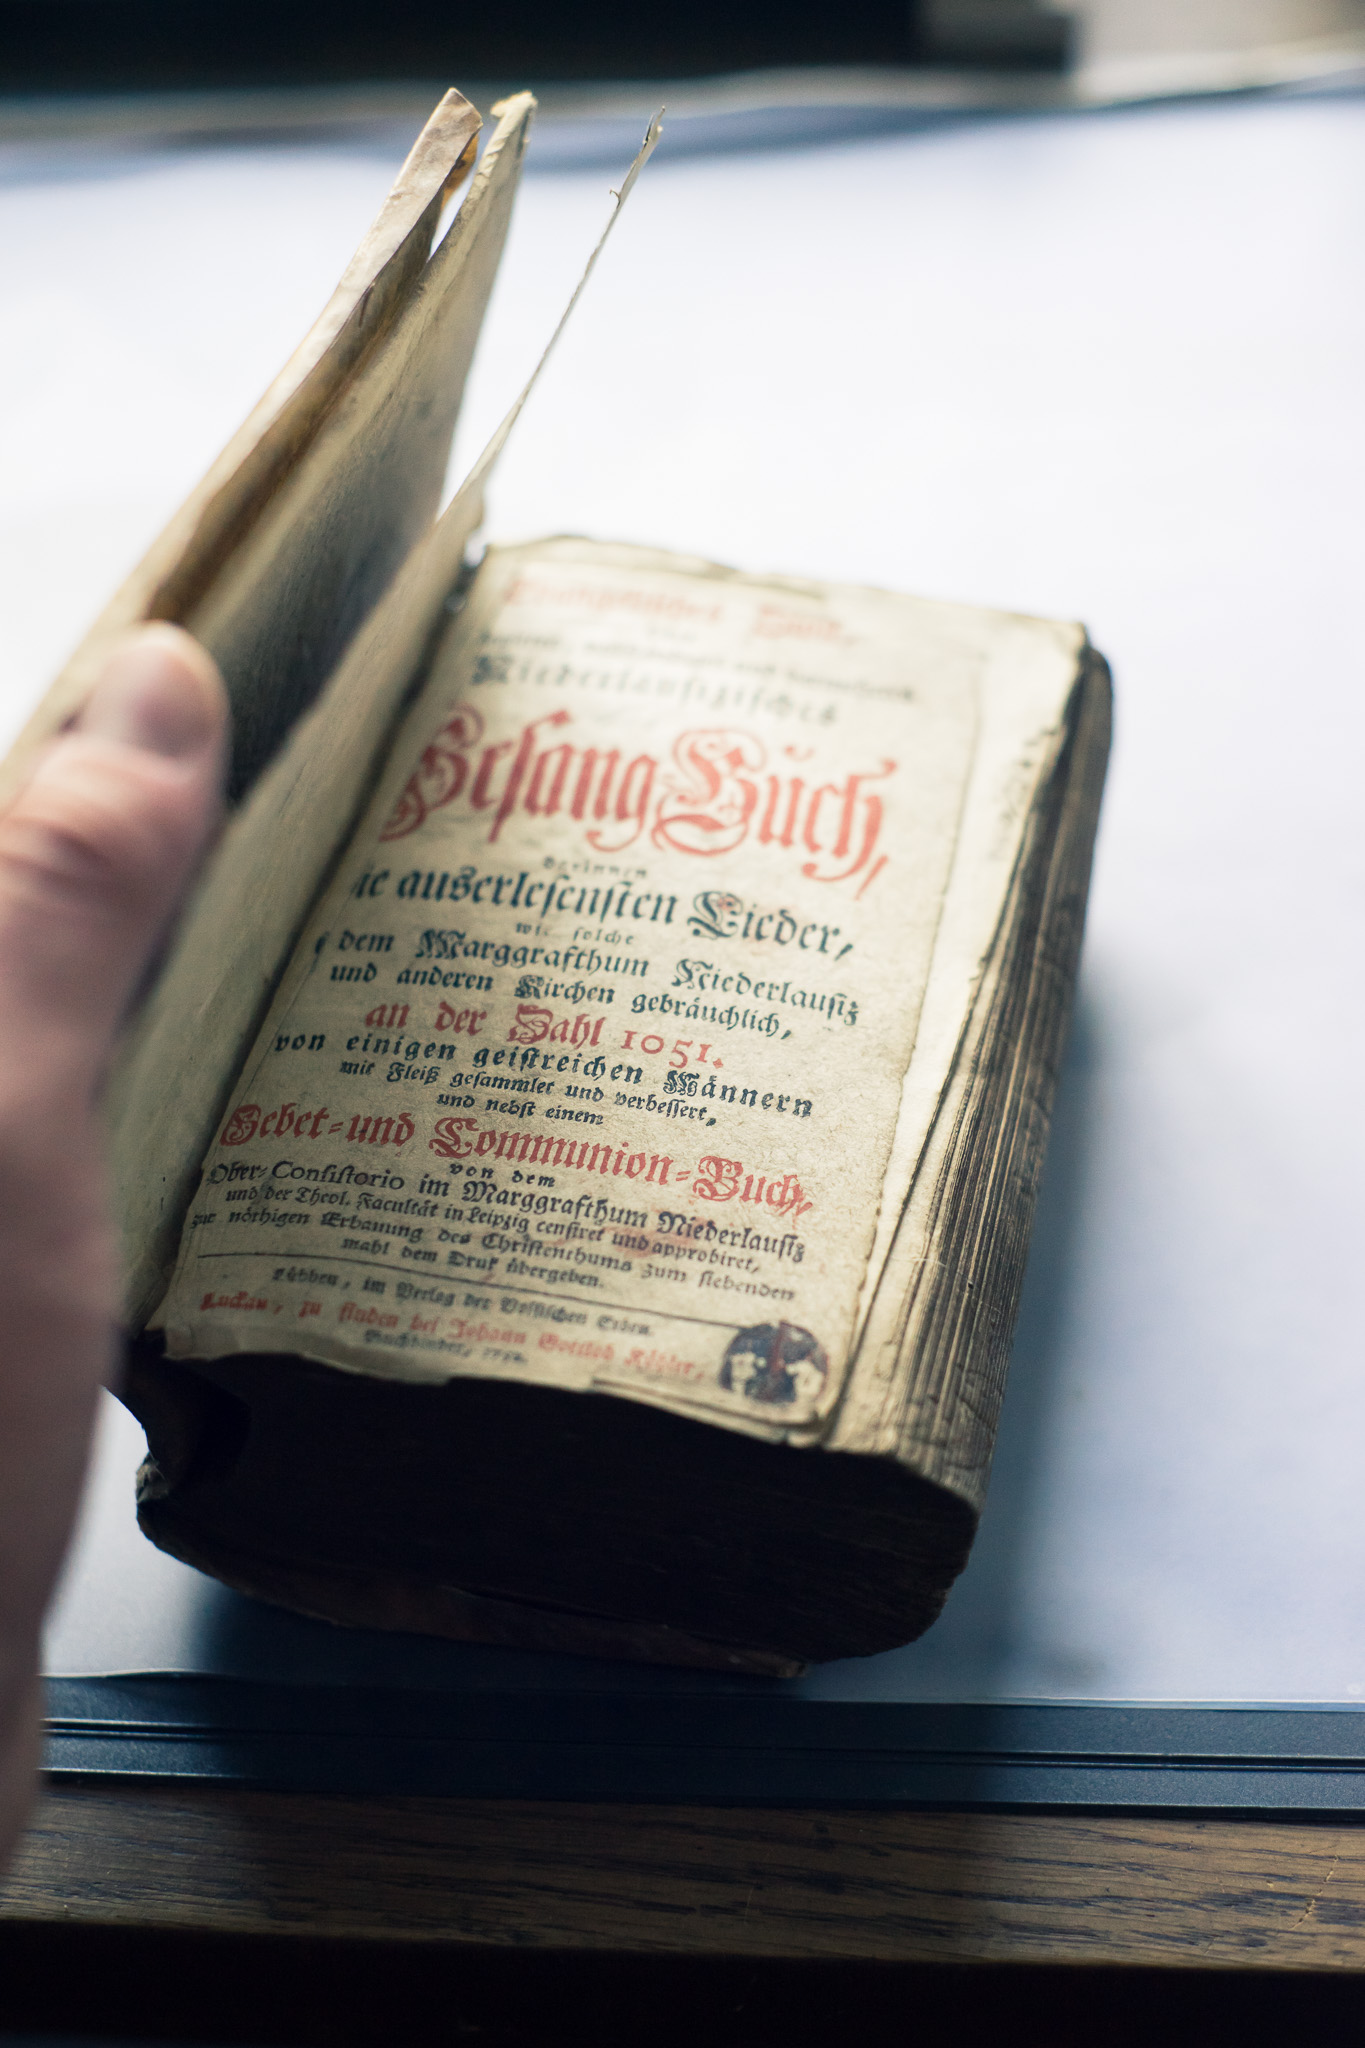 Niederlausizisches
Gesang Büch,
darinnen
ie auserlesensten Lieder,
wie solche
dem Marggrafthum Niederlausiz
und anderen Kirchen gebräuchlich,
an der Zahl 1051.
von einigen geistreichen Männern
mit Fleiß gesammlet und verbessert,
und nebst einem
Gebet-und Communion-Buch,
von dem
Ober-Consistorio im Marggrafthum Niederlausiz
und der Theol. Facultät in Leipzig censiret und approbiret,
zur nöthigen Erbauung des Christenthums zum siebenden
mahl dem Druk übergeben.
Lübben, im Verlag der Erben.
Luckau, zu finden bei Johann Gottlob
Buchbinder,